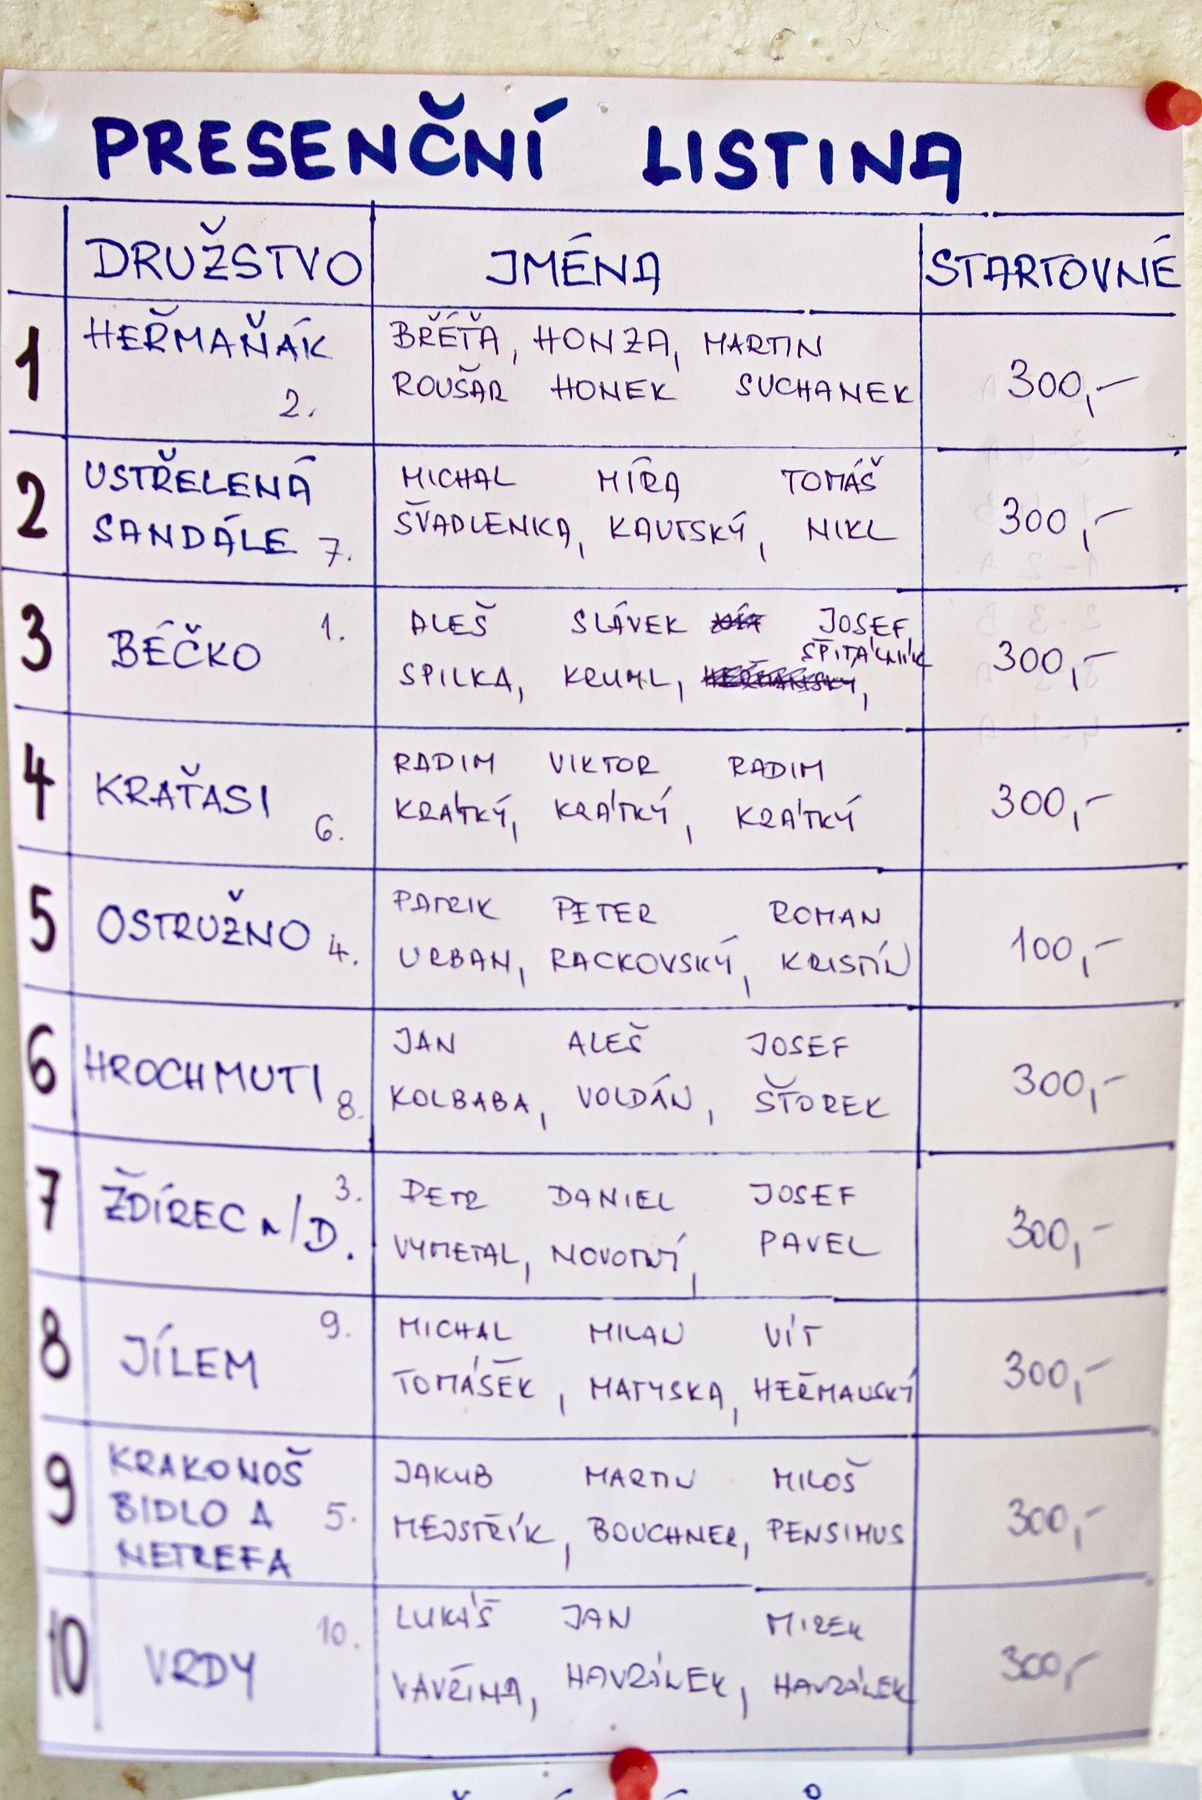 PRESENČNÍ LISTINA
DRUŽSTVO JMÉNA STARTOVNÉ
1 HEŘMAŇÁK BŘÉŤA, HONZA, MARTIN
2. ROUŠAR HONEK SUCHANEK 300,-
2 USTŘELENÁ MICHAL MÍRA TOMÁŠ
SANDÁLE 7. ŠVADLENKA, KAUTSKÝ, NIKL 300,-
3 BÉČKO 1. ALEŠ SLÁVEK JOSEF,
ŠPITÁLNÍK
SPILKA, KRUML, 300,-
4 KRAŤASI RADIM VIKTOR RADIM
6. KRÁTKÝ, KRÁTKÝ, KRÁTKÝ 300,-
5 OSTRUŽNO 4. PATRIK PETER ROMAN
URBAN, RACKOVSKÝ, KRISTÍN 100,-
6 HROCHMUTI 8. JAN ALEŠ JOSEF
KOLBABA, VOLDÁN, ŠTOREK 300,-
7 ŽDÍREC n/D. 3. PETR DANIEL JOSEF
VYMETAL, NOVOTNÝ, PAVEL 300,-
8 JÍLEM 9. MICHAL MILAN VÍT
TOMÁŠEK, MATYSKA, HEŘMANSKÝ 300,-
9 KRAKONOŠ JAKUB MARTIN MILOŠ
BIDLO A 5. MEJSTŘÍK, BOUCHNER, PENSIMUS 300,-
NETREFA
10 VRDY 10. LUKÁŠ JAN MIREK
VAVŘINA, HAVRÁNEK, HAVRÁNEK 300,-